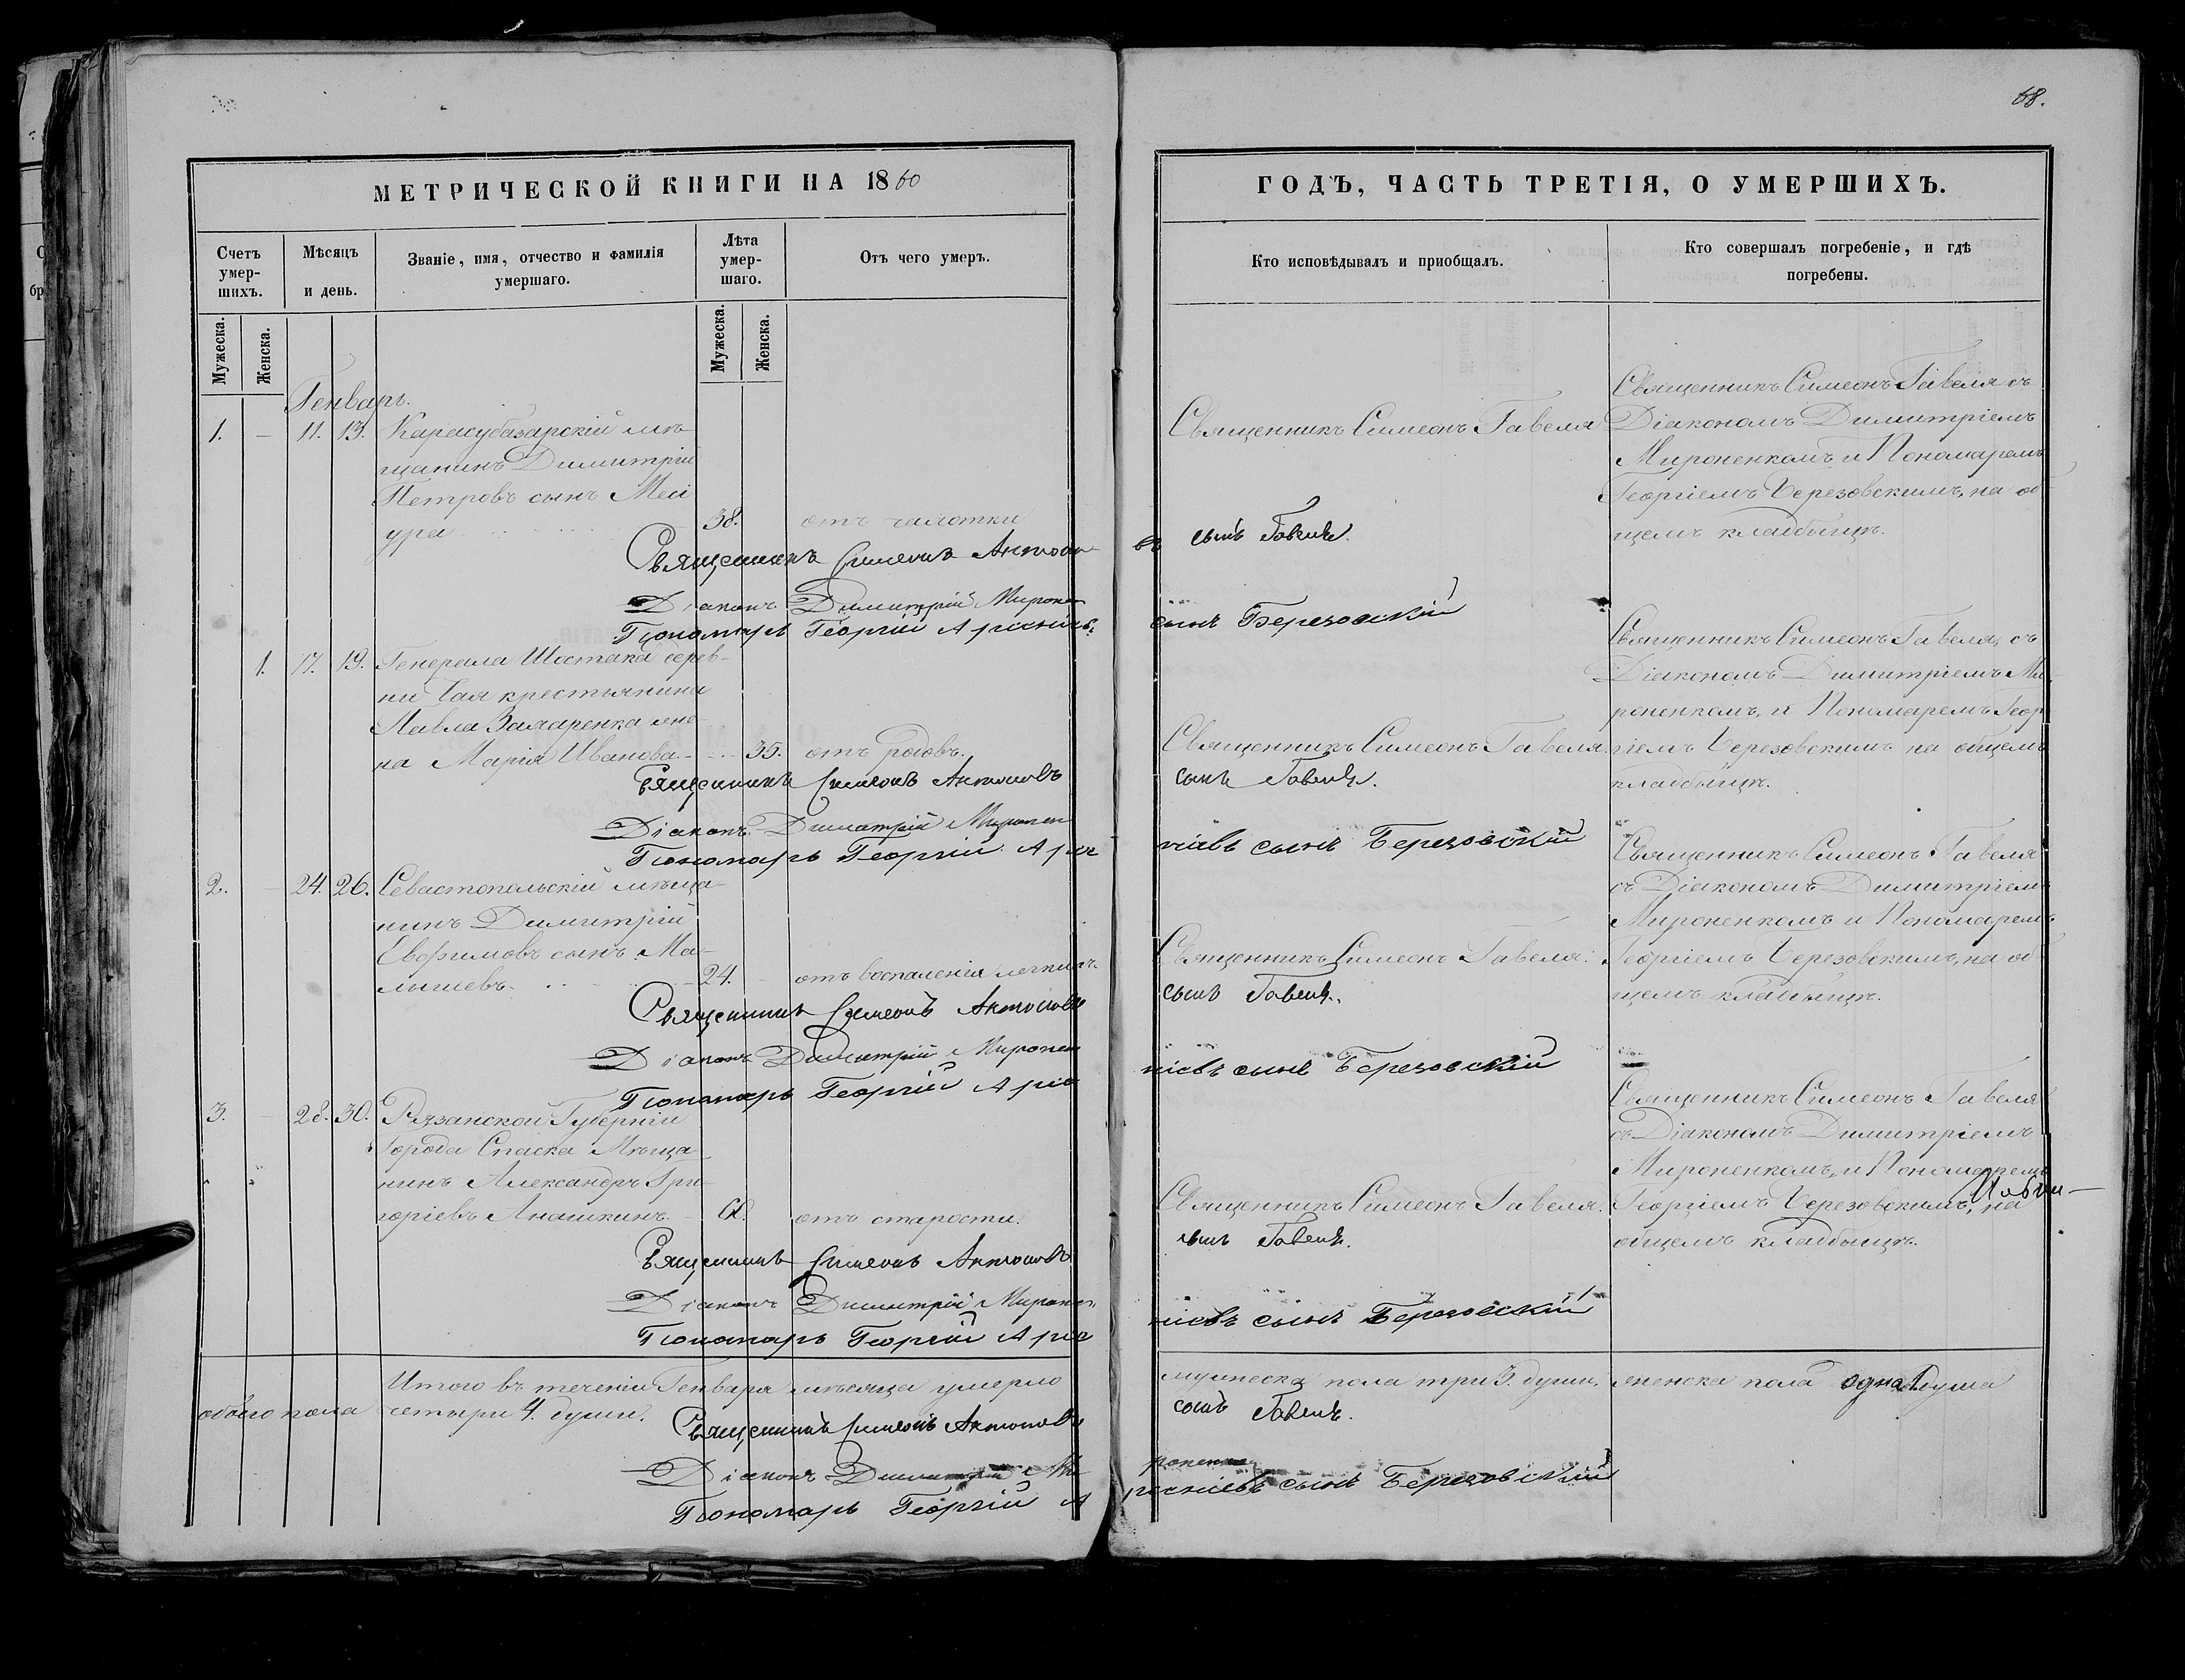 68.
МЕТРИЧЕСКОЙ КНИГИ НА 1860
Счетъ
умер-
шихъ.
Мѣсяцъ
и день.
Званіе, имя, отчество и фамилія
умершаго.
Лѣта
умер-
шаго.
Отъ чего умеръ.
Мужеска.
Женска.
Мужеска.
Женска.
Генварь.
1. – 11. 13. Карасубазарскій мѣ-
щанинъ Димитрій
Петровъ сынъ Меси
ура 38. отъ чахотки
Священникъ Симеонъ Антоно
Діаконъ Димитрій Мироне
Пономарь Георгій Арсеніев
1. 17. 19. Генерала Шостака дерев-
ни Чая крестьянина
Павла Захаренка же-
на Марія Иванова. 35. отъ родовъ.
Священникъ Симеонъ Антоновъ
Діаконъ Димитрій Миронен
Пономарь Георгій Арсе
2. – 24. 26. Севастопольскій мѣща-
нинъ Димитрій
Евфимовъ сынъ Ма-
лышевъ. 24. – отъ воспаленія легкихъ
Священникъ Симеонъ Антоновъ
Діаконъ Димитрій Миронен
Пономарь Георгій Арсе
3. – 28. 30. Рязанской Губерніи
Города Спаска Мѣща-
нинъ Александръ Гри-
горіевъ Анашкинъ. отъ старости.
Священникъ Симеонъ Антоновъ
Діаконъ Димитрій Миронен
Пономарь Георгій Арсе
Итого въ теченіи Генваря мѣсяца умерло
обоего пола четыри 4. души.
Священникъ Симеонъ Антоновъ
Діаконъ Димитрій Ми
Пономарь Георгій А
ГОДЪ, ЧАСТЬ ТРЕТІЯ, О УМЕРШИХЪ.
Кто исповѣдывалъ и приобщалъ.
Кто совершалъ погребеніе, и гдѣ
погребены.
Священникъ Симеонъ Гавеля
въ сынъ Гавеля.
сынъ Березовскій
Священникъ Симеонъ Гавеля.
сынъ Гавеля.
ніевъ сынъ Березовскій
Священникъ Симеонъ Гавеля.
сынъ Гавеля.
ніевъ сынъ Березовскій
Священникъ Симеонъ Гавеля.
сынъ Гавеля.
ніевъ сынъ Березовскій
Священникъ Симеонъ Гавеля съ
Діакономъ Димитріемъ
Мироненкомъ и Пономаремъ
Георгіемъ Березовскимъ, на об
щемъ кладбищѣ.
Священникъ Симеонъ Гавеля, съ
Діакономъ Димитріемъ Ми
роненкомъ, и Пономаремъ Геор
гіемъ Березовскимъ на общемъ
кладбищѣ.
Священникъ Симеонъ Гавеля
съ Діакономъ Димитріемъ
Мироненкомъ и Пономаремъ
Георгіемъ Березовскимъ, на об
щемъ кладбищѣ.
Священникъ Симеонъ Гавеля
съ Діакономъ Димитріемъ
Мироненкомъ, и Пономаремъ
Георгіемъ Березовскимъ, на
общемъ кладбищѣ.
мужеска пола три 3. души, женска пола одна 1 душа
сынъ Гавеля.
роненко
рсеніевъ сынъ Березовскій